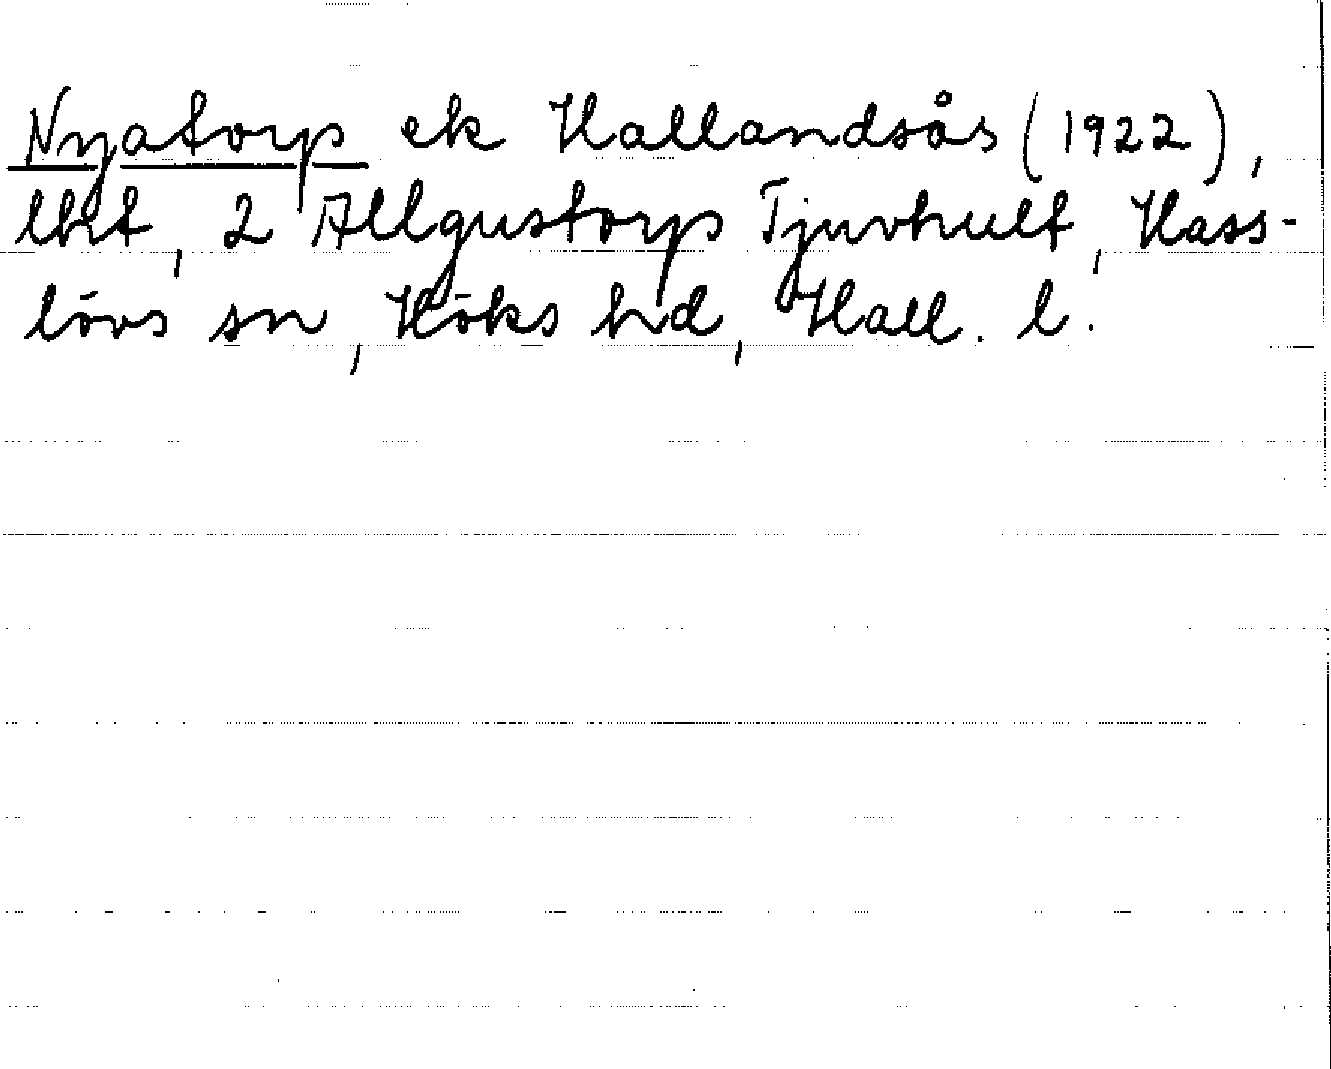 Nyatorp ek Hallandsås (1922),
lht, 2 Allgustorp Tjuvhult, Hass-
lövs sn, Höks hd, Hall. l.